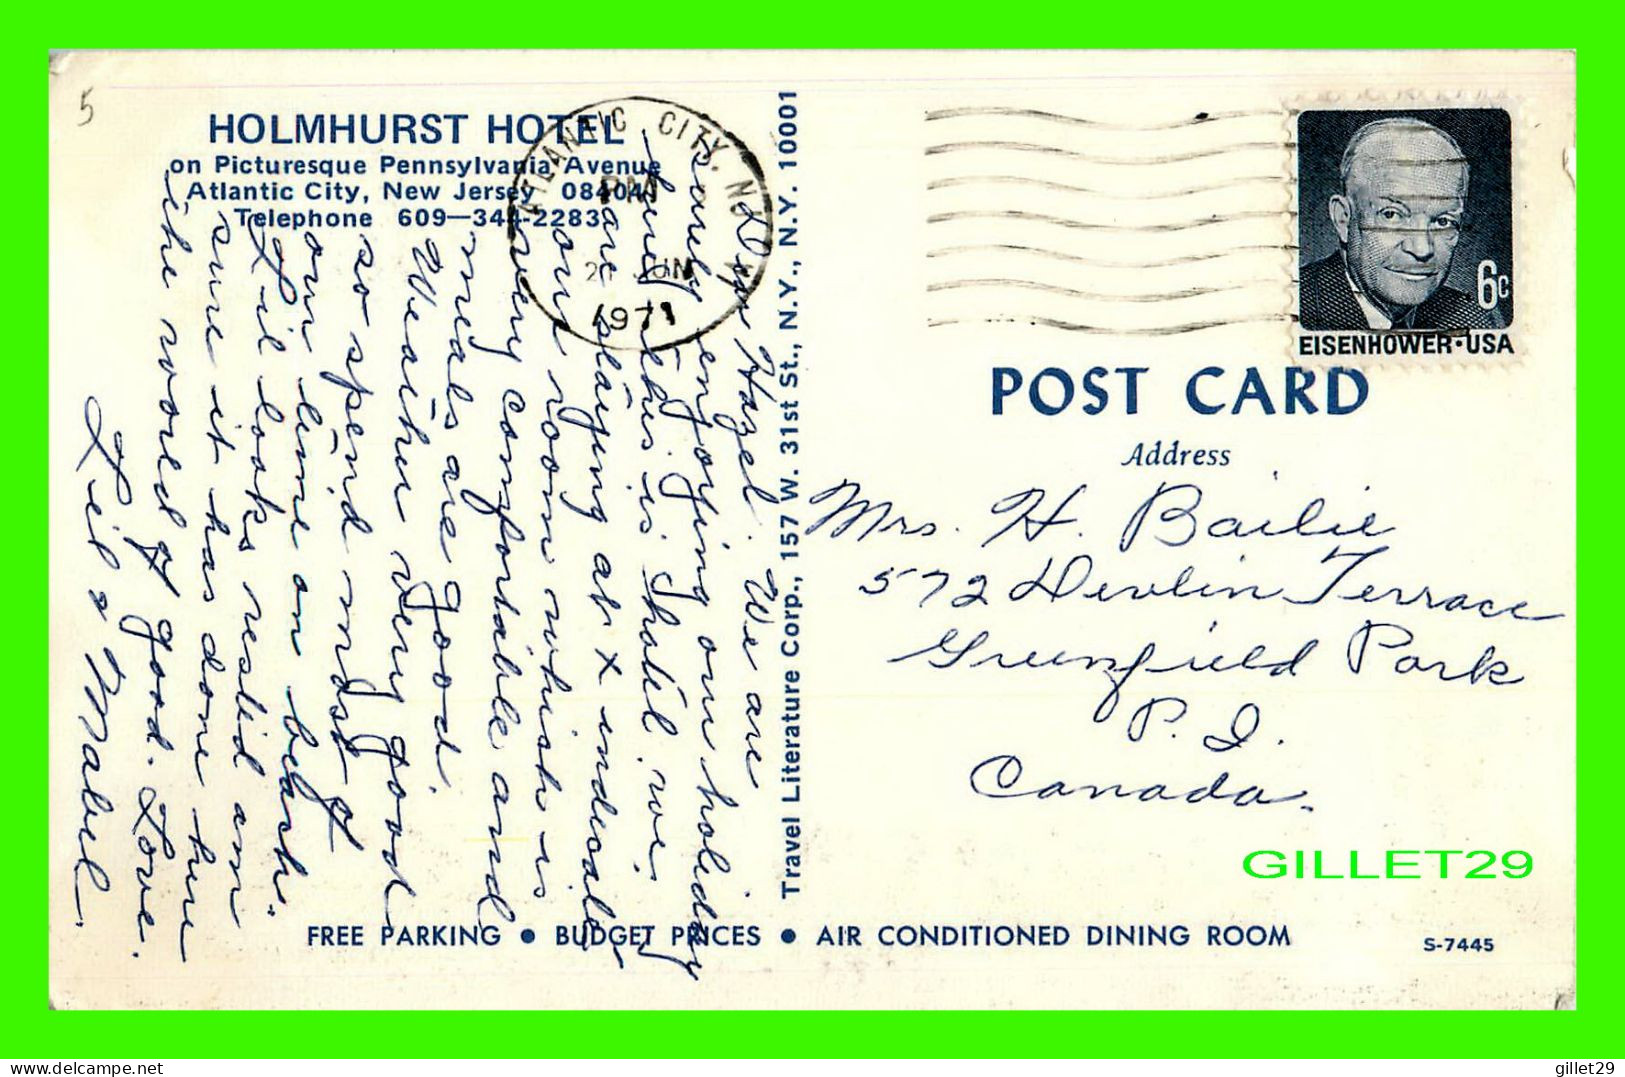 5
HOLMHURST HOTEL
on Picturesque Pennsylvania Avenue
Atlantic City, New Jersey 08404
Telephone 609—344-2283
ATLANTIC CITY, NJ
PM
JUN
1971
Dear Hazel. We are
surely enjoying our holiday
here, this is hotel we
are staying at x indicates
our room which is
very comfortable and
meals are good.
Weather very good
so spend most of
our time on beach.
Lil looks rested am
sure it has done her
the world of good. Love.
Lil & Mabel.
Travel Literature Corp., 157 W. 31st St., N.Y., N.Y. 10001
EISENHOWER·USA
6c
POST CARD
Address
Mrs. H. Bailie
572 Devlin Terrace
Greenfield Park
P. Q.
Canada.
GILLET29
FREE PARKING ● BUDGET PRICES ● AIR CONDITIONED DINING ROOM
S-7445
www.delcampe.net
gillet29